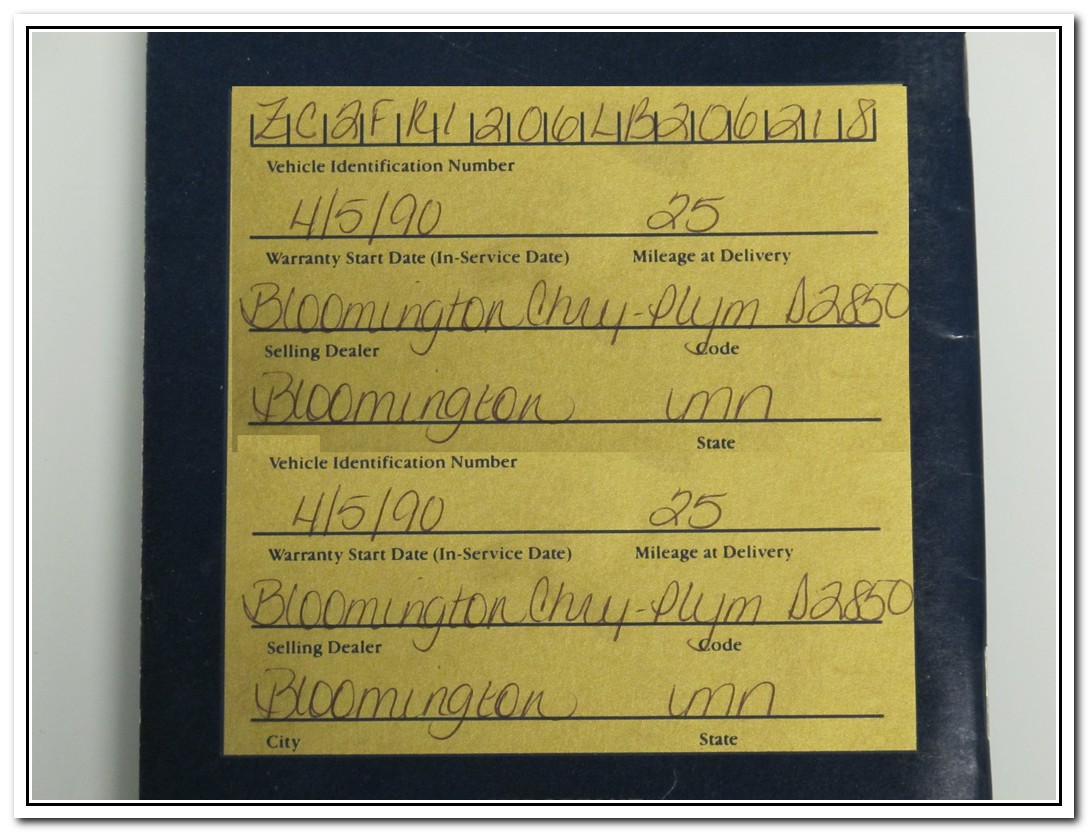 ZC2FR1206LB206218
Vehicle Identification Number
4/5/90 25
Warranty Start Date (In-Service Date) Mileage at Delivery
Bloomington Chry-Plym D2850
Selling Dealer Code
Bloomington mn
State
Vehicle Identification Number
4/5/90 25
Warranty Start Date (In-Service Date) Mileage at Delivery
Bloomington Chry-Plym D2850
Selling Dealer Code
Bloomington mn
City State